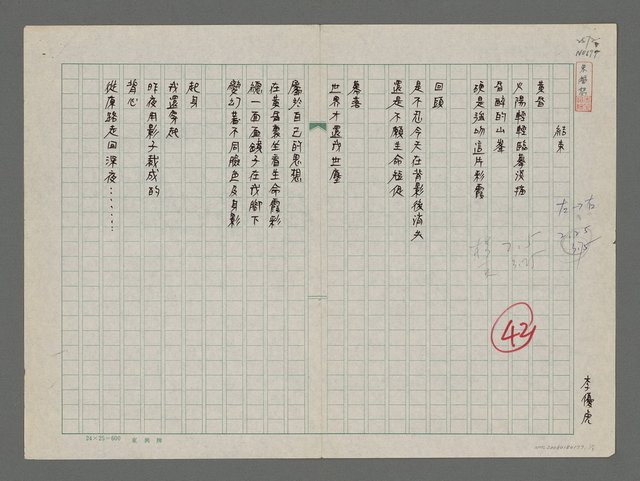 結束
黃昏
火陽輕輕臨摹淡描
昏醉的山峯
硬是強吻這片彩霞
回頭
是不忍今天在背影後消失
還是不願生命植促
暮落
世界才還我世塵
屬於自己的思想
在黃昏裏坐看生命霞彩
穩一面面鏡子在我腳下
變幻著不同臉色及身影
起身
我還穿起
昨夜用影子裁成的
背心
從原路走回深夜……
李優虎
左→右
3.25
42
24×25=600